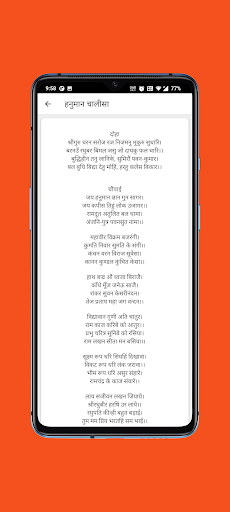 9:58
77%
हनुमान चालीसा
दोहा
श्रीगुरु चरन सरोज रज निजमनु मुकुरु सुधारि।
बरनउँ रघुबर बिमल जसु जो दायकु फल चारि।।
बुद्धिहीन तनु जानिके, सुमिरौं पवन-कुमार।
बल बुधि विद्या देहु मोहि, हरहु कलेस विकार।।
चौपाई
जय हनुमान ज्ञान गुन सागर।
जय कपीस तिहुं लोक उजागर।।
रामदूत अतुलित बल धामा।
अंजनि-पुत्र पवनसुत नामा।।
महावीर विक्रम बजरंगी।
कुमति निवार सुमति के संगी।।
कंचन बरन विराज सुवेसा।
कानन कुण्डल कुंचित केसा।।
हाथ बज्र औ ध्वजा बिराजै।
काँधे मूँज जनेऊ साजै।
शंकर सुवन केसरीनन्दन।
तेज प्रताप महा जग बन्दन।।
विद्यावान गुणी अति चातुर।
राम काज करिबे को आतुर।।
प्रभु चरित्र सुनिबे को रसिया।
राम लखन सीता मन बसिया।।
सूक्ष्म रूप धरि सियहिं दिखावा।
विकट रूप धरि लंक जरावा।।
भीम रूप धरि असुर संहारे।
रामचंद्र के काज संवारे।।
लाय सजीवन लखन जियाये।
श्रीरघुबीर हरषि उर लाये।।
रघुपति कीन्ही बहुत बड़ाई।
तुम मम प्रिय भरतहि सम भाई।।